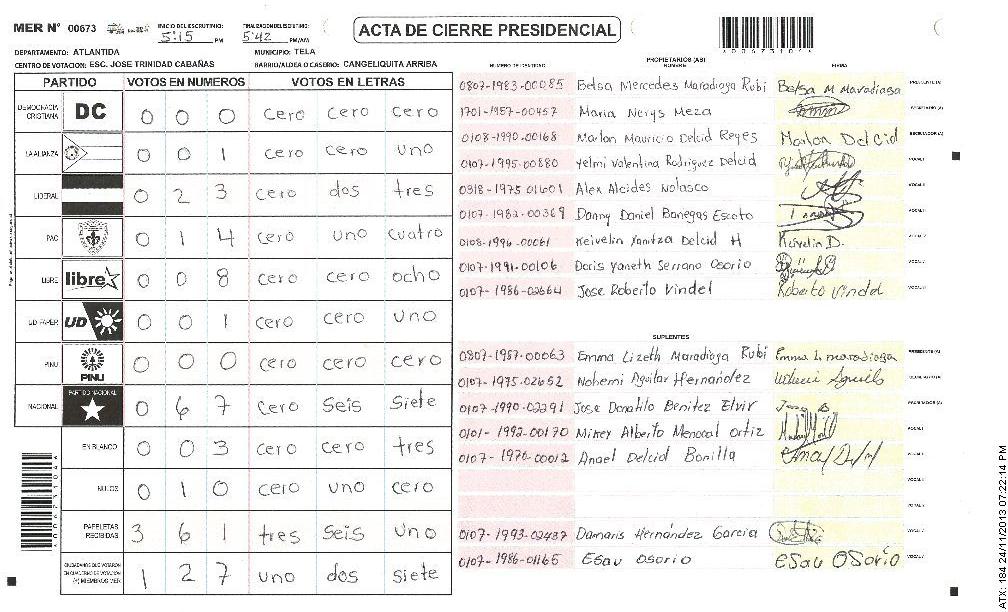 MER Nº 00673
INICIO DEL ESCRUTINIO: 5:15 PM
FINALIZACION DEL ESCRUTINIO: 5:42 PM/AM
ACTA DE CIERRE PRESIDENCIAL
DEPARTAMENTO: ATLANTIDA
MUNICIPIO: TELA
CENTRO DE VOTACION: ESC. JOSE TRINIDAD CABAÑAS
BARRIO/ALDEA O CASERIO: CANGELIQUITA ARRIBA
PARTIDO VOTOS EN NUMEROS VOTOS EN LETRAS
DEMOCRACIA CRISTIANA DC 0 0 0 cero cero cero
LA ALIANZA 0 0 1 cero cero uno
LIBERAL 0 2 3 cero dos tres
PAC 0 1 4 cero uno cuatro
LIBRE libre 0 0 8 cero cero ocho
UD FAPER UD 0 0 1 cero cero uno
PINU PINU 0 0 0 cero cero cero
NACIONAL PARTIDO NACIONAL 0 6 7 cero seis siete
EN BLANCO 0 0 3 cero cero tres
NULOS 0 1 0 cero uno cero
PAPELETAS RECIBIDAS 3 6 1 tres seis uno
CIUDADANOS QUE VOTARON EN CUADERNO DE VOTACION (+) MIEMBROS MER 1 2 7 uno dos siete
PROPIETARIOS (AS)
NUMERO DE IDENTIDAD NOMBRE FIRMA
0807-1983-00085 Belsa Mercedes Maradiaga Rubi Belsa M Maradiaga PRESIDENTE (A)
1701-1957-00457 Maria Nerys Meza SECRETARIO (A)
0108-1990-00168 Marlon Mauricio Delcid Reyes Marlon Del Cid ESCRUTADOR (A)
0107-1995-00880 Yelmi Valentina Rodriguez Delcid VOCAL I
0318-1975-01601 Alex Alcides Nolasco VOCAL II
0107-1982-00369 Danny Daniel Banegas Escoto
0108-1996-00061 Keivelin Yanitza Delcid H Keivelin D.
0107-1991-00106 Doris Yaneth Serrano Osorio
0107-1986-02664 Jose Roberto Vindel Roberto Vindel
SUPLENTES
0807-1957-00063 Emma Lizeth Maradiaga Rubi Emma L maradiaga PRESIDENTE (A)
0107-1975-02652 Nohemi Aguilar Hernández SECRETARIO (A)
0107-1990-02291 Jose Donatilo Benitez Elvir
0101-1992-00170 Mikey Alberto Menocal Ortiz VOCAL I
0107-1976-00012 Angel Delcid Bonilla
0107-1993-02437 Damaris Hernández Garcia
0107-1986-01165 Esau Osorio Esau Osorio
ATX: 184 24/11/2013 07:22:14 PM